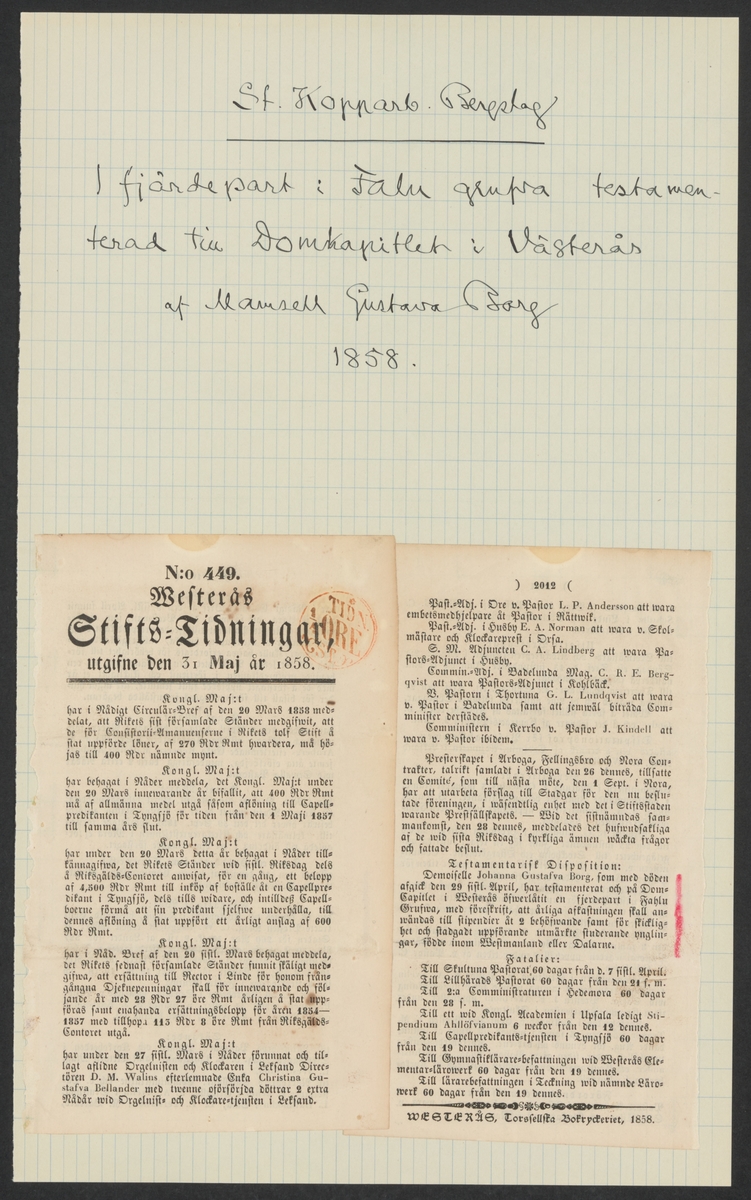 St. Kopparb. Bergslag
1 fjärdepart i Falu grufva testamen-
terad till Domkapitlet i Västerås
af Mamsell Gustava Borg
1858.
N:o 449.
Westerås
Stifts-Tidningar,
utgifne den 31 Maj år 1858.
Kongl. Maj:t
har i Nådigt Circulär-Bref af den 20 Mars 1858 med-
delat, att Rikets sist församlade Ständer medgifwit, att
de för Consistorii-Amanuenserne i Rikets tolf Stift å
stat uppförde löner, af 270 Rdr Rmt hwardera, må hö-
jas till 400 Rdr nämnde mynt.
Kongl. Maj:t
har behagat i Nåder meddela, det Kongl. Maj:t under
den 20 Mars innewarande år bifallit, att 400 Rdr Rmt
må af allmänna medel utgå såsom aflöning till Capell-
predikanten i Tyngsjö för tiden från den 1 Maji 1857
till samma års slut.
Kongl. Maj:t
har under den 20 Mars detta år behagat i Nåder till-
kännagifwa, det Rikets Ständer wid sistl. Riksdag dels
å Riksgälds-Contoret anwisat, för en gång, ett belopp
af 4,500 Rdr Rmt till inköp af boställe åt en Capellpre-
dikant i Tyngsjö, dels tills widare, och intilldeß Capell-
boerne förmå att sin predikant sjelfwe underhålla, till
dennes aflöning å stat uppfört ett årligt anslag af 600
Rdr Rmt.
Kongl. Maj:t
har i Nåd. Bref af den 20 sistl. Mars behagat meddela,
det Rikets sednast församlade Ständer funnit skäligt med-
gifwa, att ersättning till Rector i Linde för honom från-
gångna Djeknepenningar skall för innewarande och föl-
jande år med 28 Rdr 27 öre Rmt årligen å stat upp-
föras samt enahanda ersättningsbelopp för åren 1854—
1857 med tillhopa 113 Rdr 8 öre Rmt från Riksgälds-
Contoret utgå.
Kongl. Maj:t
har under den 27 sistl. Mars i Nåder förunnat och til-
lagt aflidne Orgelnisten och Klockaren i Leksand Direc-
tören D. M. Walins efterlemnade Enka Christina Gu-
stafva Bellander med twenne oförsörjda döttrar 2 extra
Nådår wid Orgelnist- och Klockare-tjensten i Leksand.
) 2012 (
Past.-Adj. i Ore v. Pastor L. P. Andersson att wara
embetsmedhjelpare åt Pastor i Rättwik.
Past.-Adj. i Husby E. A. Norman att wara v. Skol-
mästare och Klockareprest i Orsa.
S. M. Adjuncten C. A. Lindberg att wara Pa-
stors-Adjunct i Husby.
Commin.-Adj. i Badelunda Mag. C. R. E. Berg-
qvist att wara Pastors-Adjunct i Kohlbäck.
V. Pastorn i Thortuna G. L. Lundqvist att wara
v. Pastor i Badelunda samt att jemwäl biträda Com-
minister derstädes.
Comministern i Kerrbo v. Pastor J. Kindell att
wara v. Pastor ibidem.
Presterskapet i Arboga, Fellingsbro och Nora Con-
trakter, talrikt samladt i Arboga den 26 dennes, tillsatte
en Comité, som till nästa möte, den 1 Sept. i Nora,
har att utarbeta förslag till Stadgar för den nu beslu-
tade föreningen, i wäsendtlig enhet med det i Stiftsstaden
warande Prestsällskapets. — Wid det sistnämndas sam-
mankomst, den 28 dennes, meddelades det hufwudsakliga
af de wid sista Riksdag i kyrkliga ämnen wäckta frågor
och fattade beslut.
Testamentarisk Disposition:
Demoiselle Johanna Gustafva Borg, som med döden
afgick den 29 sistl. April, har testamenterat och på Dom-
Capitlet i Westerås öfwerlåtit en fjerdepart i Fahlu
Grufwa, med föreskrift, att årliga afkastningen skall an-
wändas till stipendier åt 2 behöfwande samt för skicklig-
het och stadgadt uppförande utmärkte studerande ynglin-
gar, födde inom Westmanland eller Dalarne.
Fatalier:
Till Skultuna Pastorat 60 dagar från d. 7 sistl. April.
Till Lillhärads Pastorat 60 dagar från den 21 s. m.
Till 2:a Comministraturen i Hedemora 60 dagar
från den 28 s. m.
Till ett wid Kongl. Academien i Upsala ledigt Sti-
pendium Ahllöfvianum 6 weckor från den 12 dennes.
Till Capellpredikants-tjensten i Tyngsjö 60 dagar
från den 19 dennes.
Till Gymnastiklärare-befattningen wid Westerås Ele-
mentar-lärowerk 60 dagar från den 19 dennes.
Till lärarebefattningen i Teckning wid nämnde Läro-
werk 60 dagar från den 19 dennes.
WESTERÅS, Torssellska Bokryckeriet, 1858.